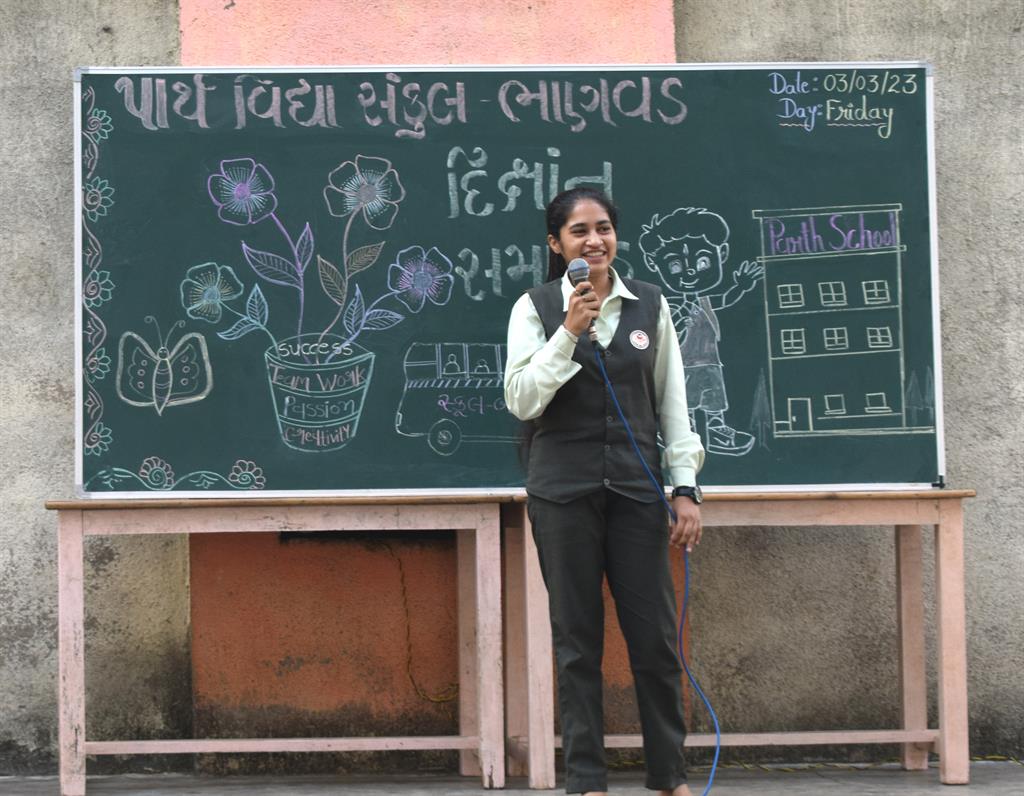 પાર્થ વિદ્યા સંકુલ - ભાણવડ
Date: 03/03/23
Day: Friday
દિક્ષાંત
Parth School
success
Team Work
Passion
Creativity
સ્કૂલ